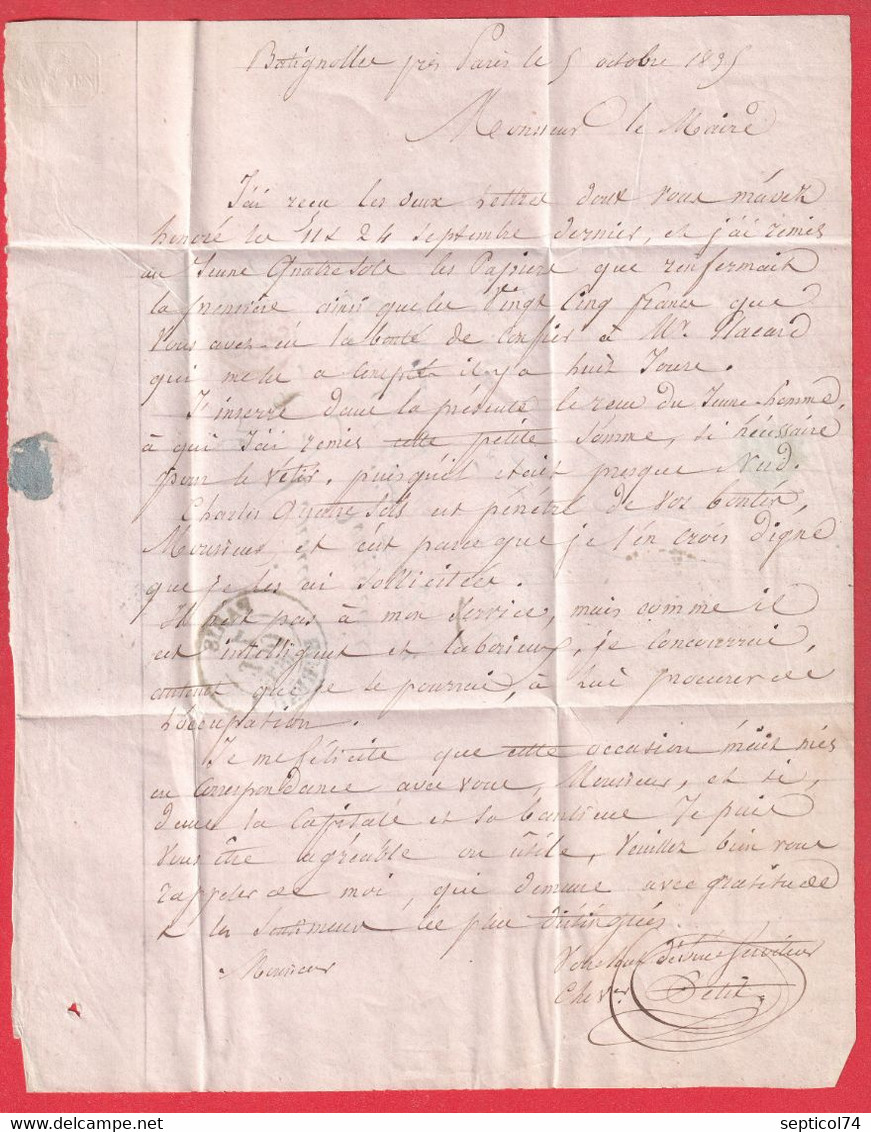 Batignolles près Paris le 5 octobre 1835
Monsieur le Maire
J'ai reçu les deux Lettres dont vous m'avez
honoré les 11 & 24 septembre dernier, et j'ai remis
au Jeune Quatresols les Papiers que renfermait
la première ainsi que les Vingt Cinq francs que
Vous avez eu la bonté de Confier à Mr. Placard
qui me les a il y a huit Jours.
J'insere dans la présente le recu du Jeune homme,
à qui J'ai remis cette petite Somme, si nécessaire
pour le Vêtir, puisqu'il etait presque Nud.
Charles Quatre Sols est pénétré de vos bontés,
Monsieur, et c'est parce que je l'en crois digne
que je les ai sollicitées.
Il n'est pas à mon Service, mais comme il
est intelligent et laborieux, je Concourrai,
autant que je le pourrai, à lui procurer de
l'occupation.
Je me félicite que cette occasion m'ait mis
en Correspondance avec vous, Monsieur, et si,
dans la Capitale et sa banlieue Je puis
Vous être agréable ou utile, Veuillez bien vous
rappeler de moi, qui demeure avec gratitude
& les Sentimens les plus distingués
Monsieur
Votre tout dévoué Serviteur
Chever Petit
delcampe.net
septicol74